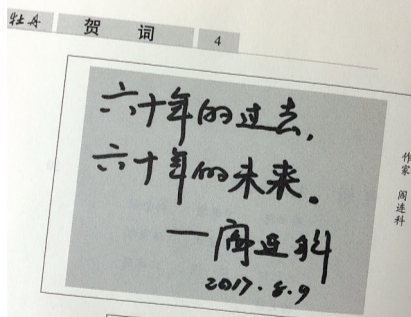 牡丹 贺词 4
六十年的过去，
六十年的未来。
—阎连科
2017.8.9
作家 阎连科